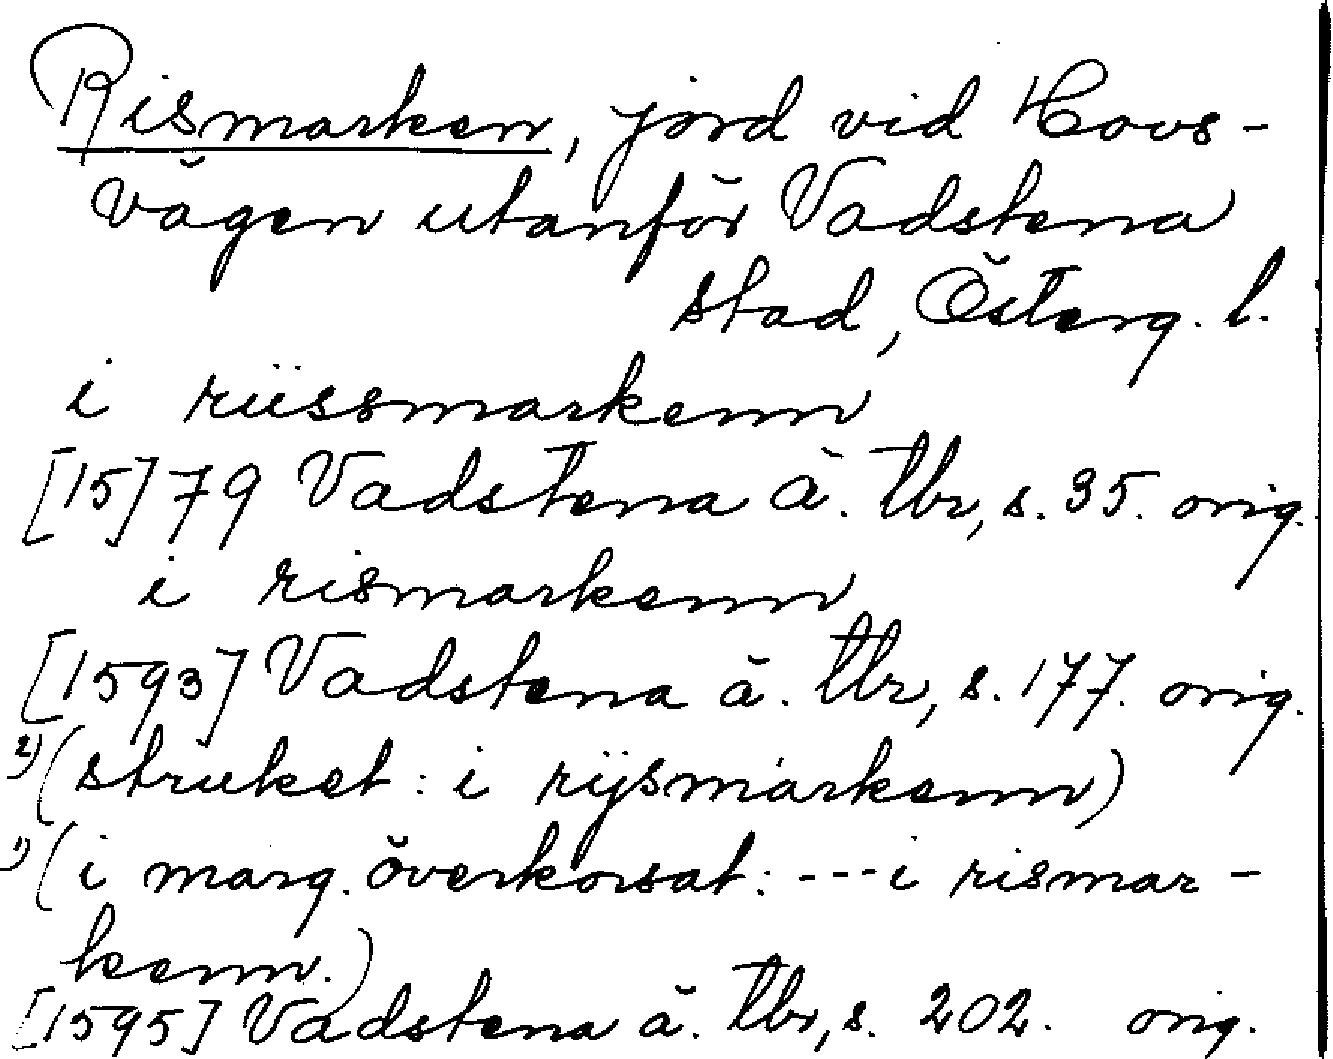 Rismarken, jord vid Hovs-
vägen utanför Vadstena
stad, Österg. l.
i riissmarkenn
[15]79 Vadstena ä. tbr, s. 35. orig.
i rismarkenn
[1593] Vadstena ä. tbr, s. 177. orig.
2) (struket: i rijsmarkenn)
1) (i marg. överkorsat: --- i rismar-
kenn.)
[1595] Vadstena ä. tbr, s. 202. orig.